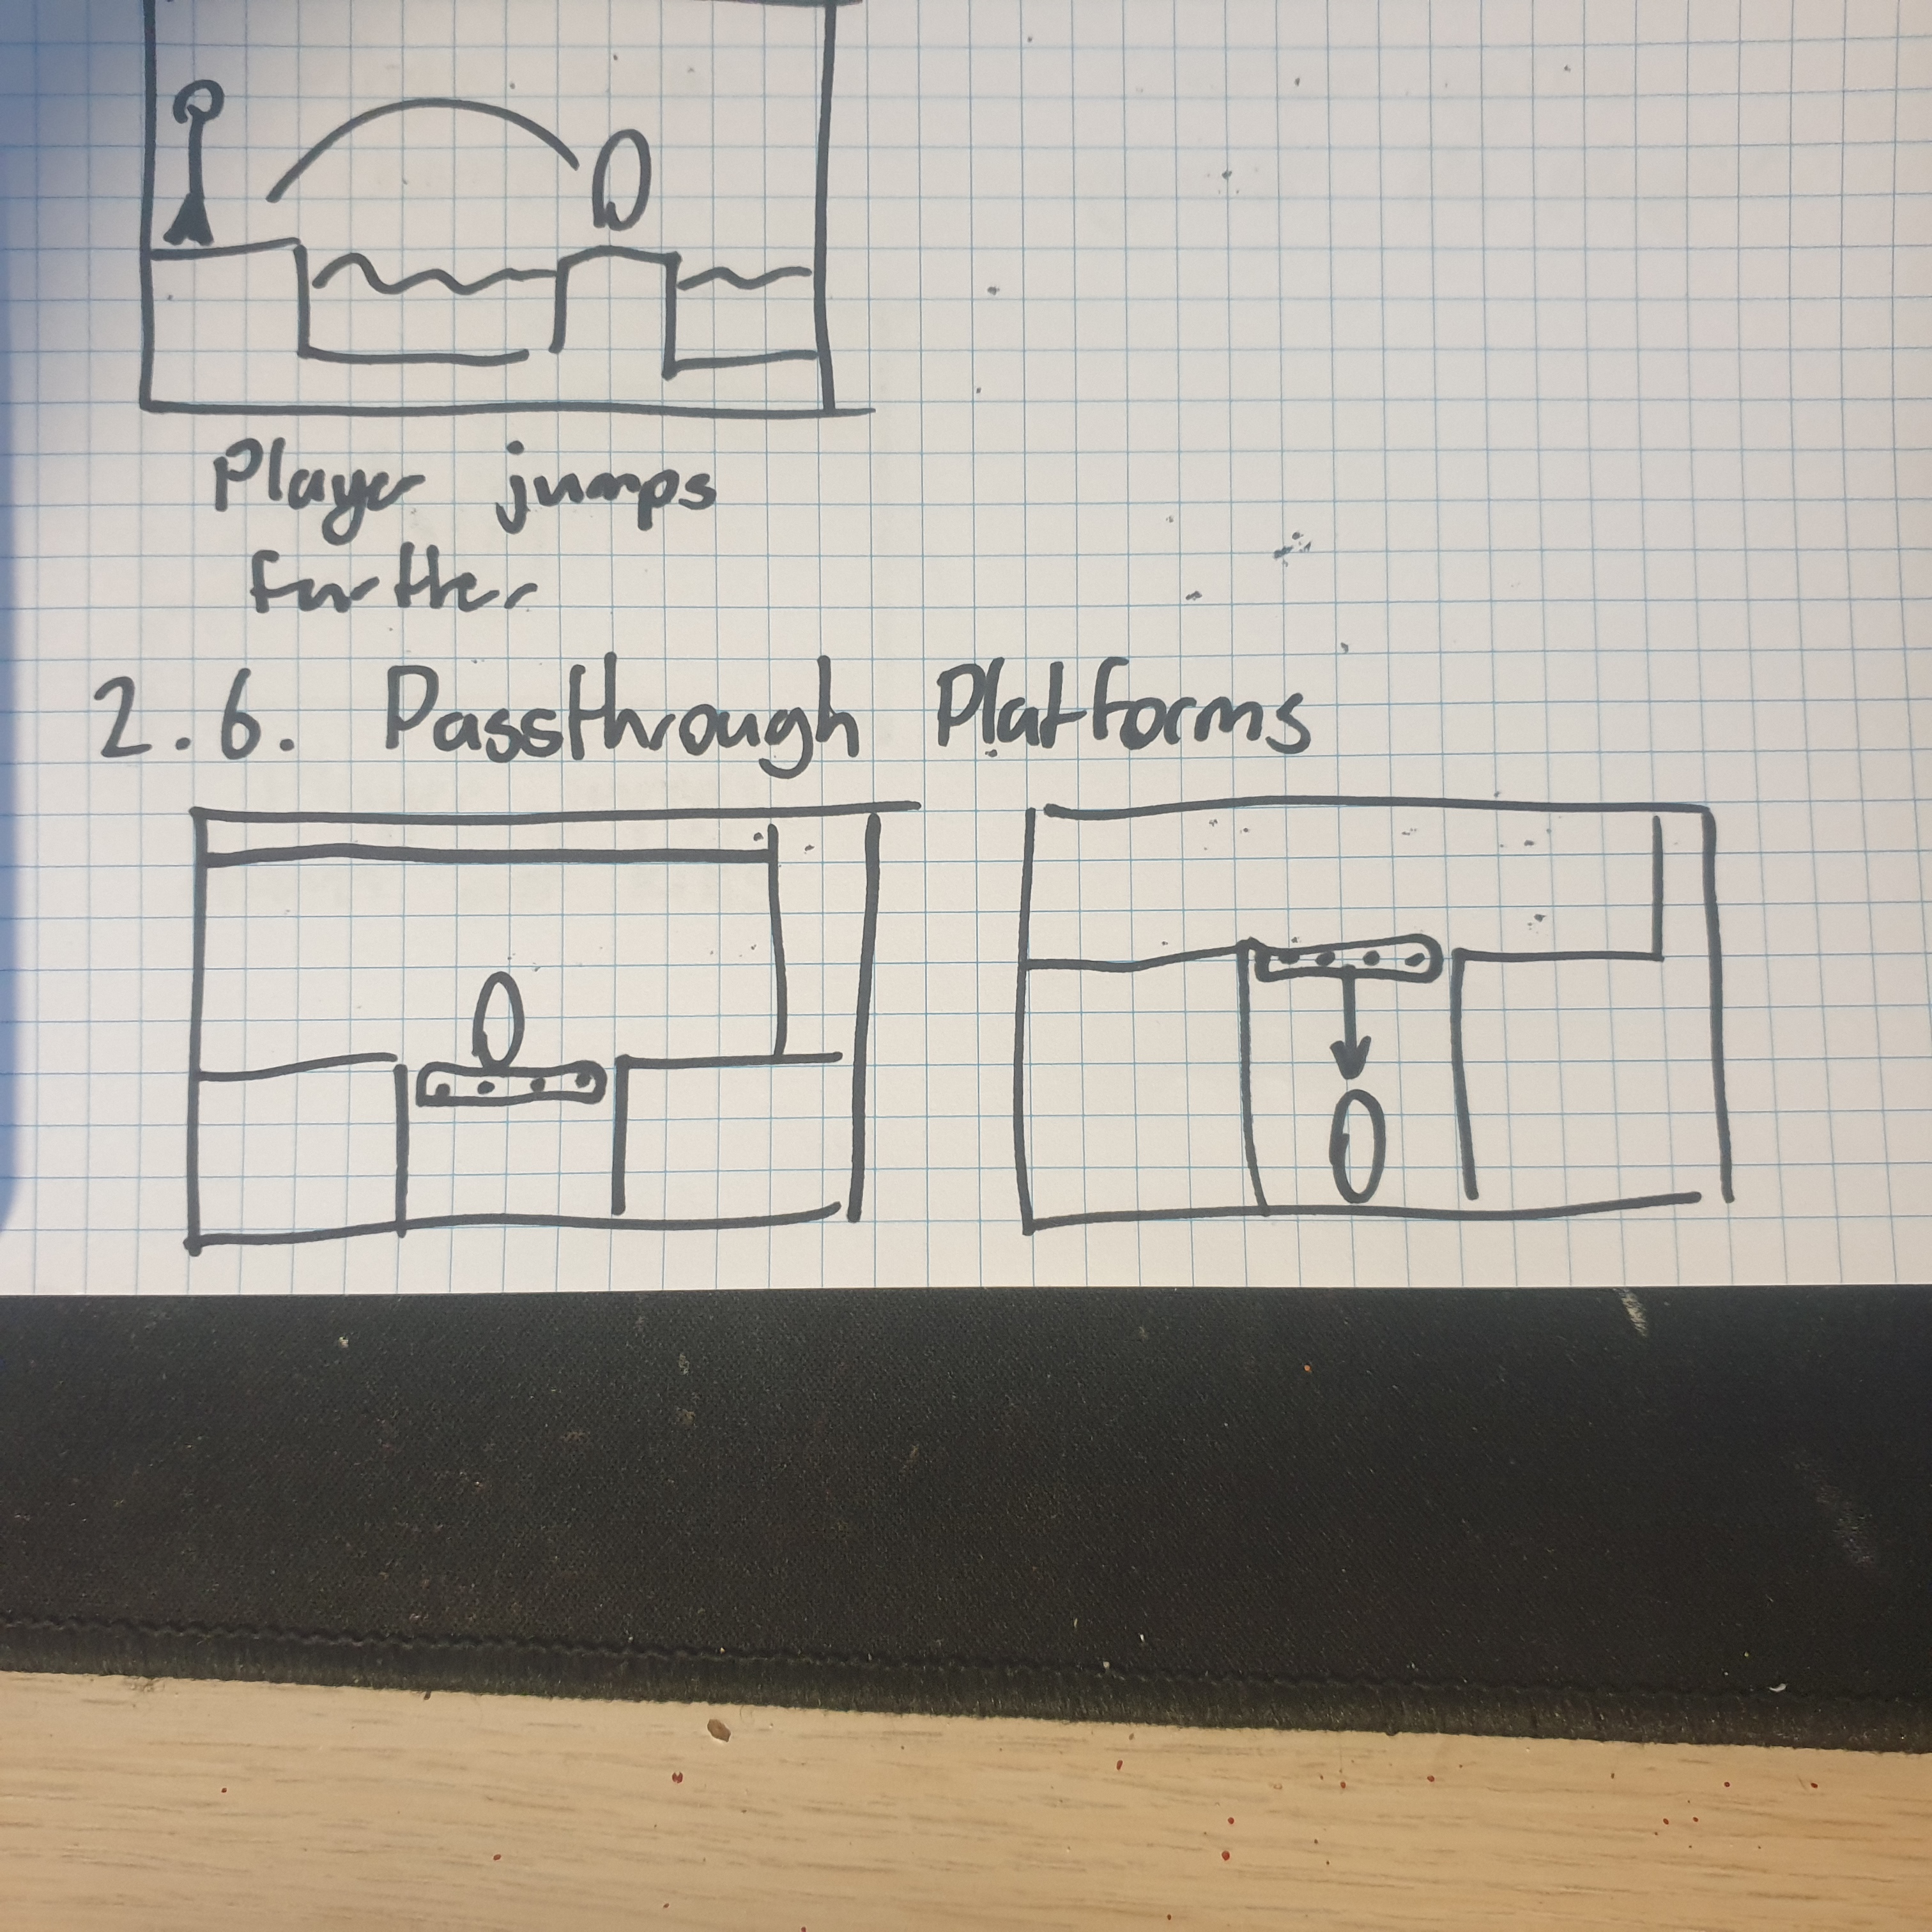 Player jumps
further
2.6. Passthrough Platforms